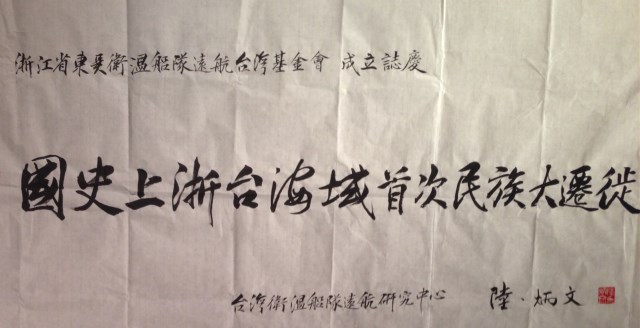 浙江省東吳衛溫船隊遠航台灣基金會 成立誌慶
國史上浙台海域首次民族大遷徙
台灣衛溫船隊遠航研究中心 陸·炳文